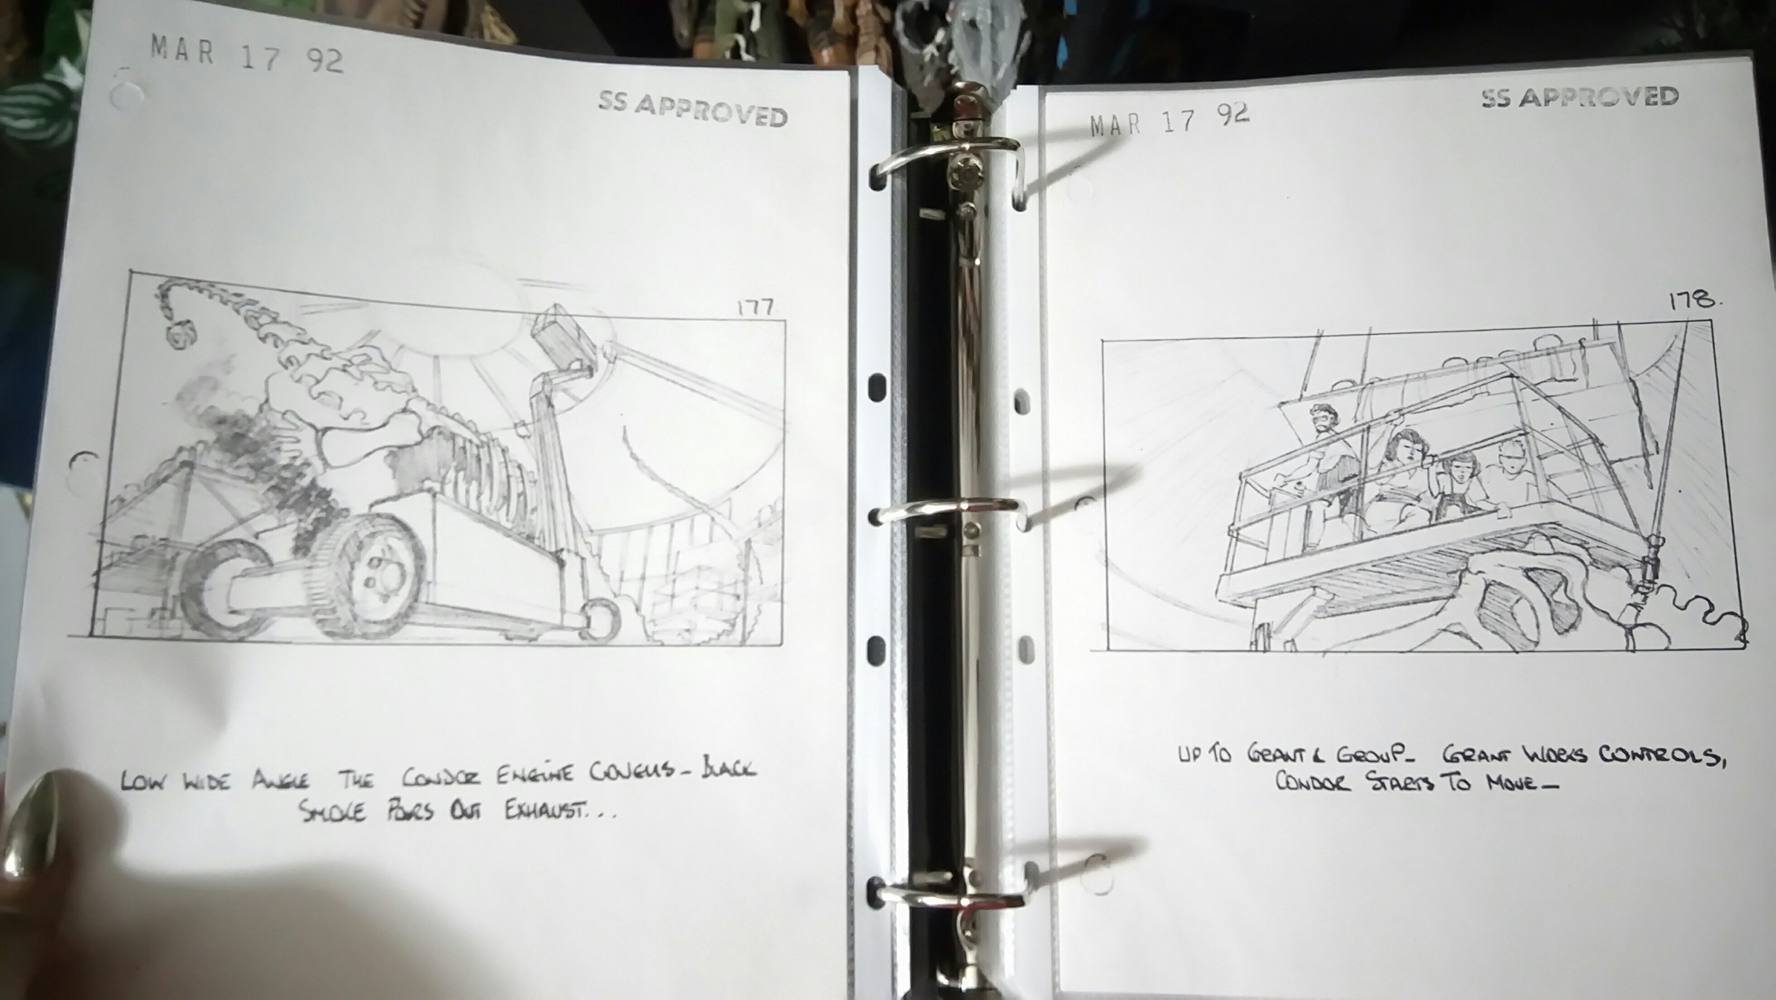 MAR 17 92
SS APPROVED
177
LOW WIDE ANGLE THE CONDOR ENGINE COUGHS - BLACK
SMOKE POURS OUT EXHAUST...
MAR 17 92
SS APPROVED
178.
UP TO GRANT & GROUP - GRANT WORKS CONTROLS,
CONDOR STARTS TO MOVE -